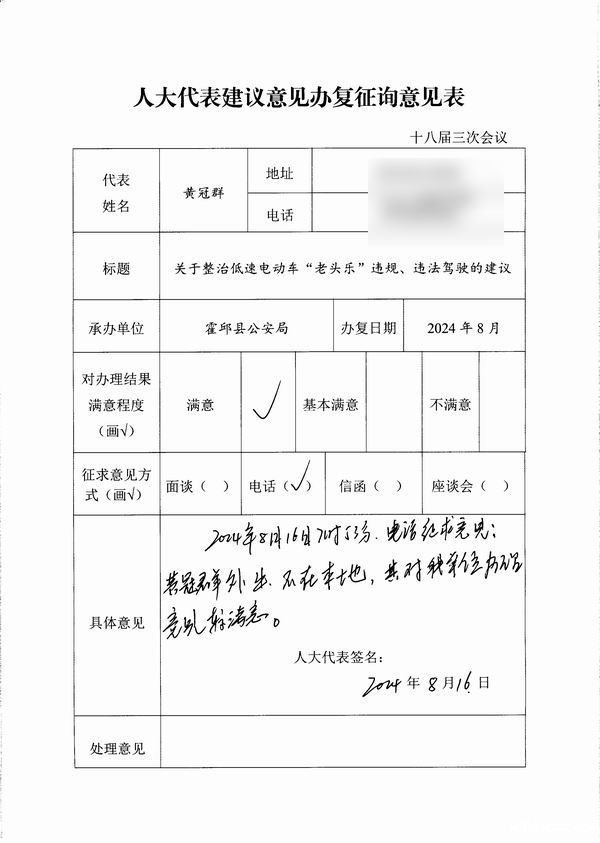 人大代表建议意见办复征询意见表
十八届三次会议
代表
姓名
黄冠群
地址
电话
标题
关于整治低速电动车“老头乐”违规、违法驾驶的建议
承办单位
霍邱县公安局
办复日期
2024年8月
对办理结果
满意程度
（画√）
满意
√
基本满意
不满意
征求意见方
式（画√）
面谈（ ）
电话（√）
信函（ ）
座谈会（ ）
具体意见
2024年8月16日 电话征求意见：
黄冠群外出 不在本地，其对我单位办理
意见 较满意。
人大代表签名：
2024年8月16日
处理意见